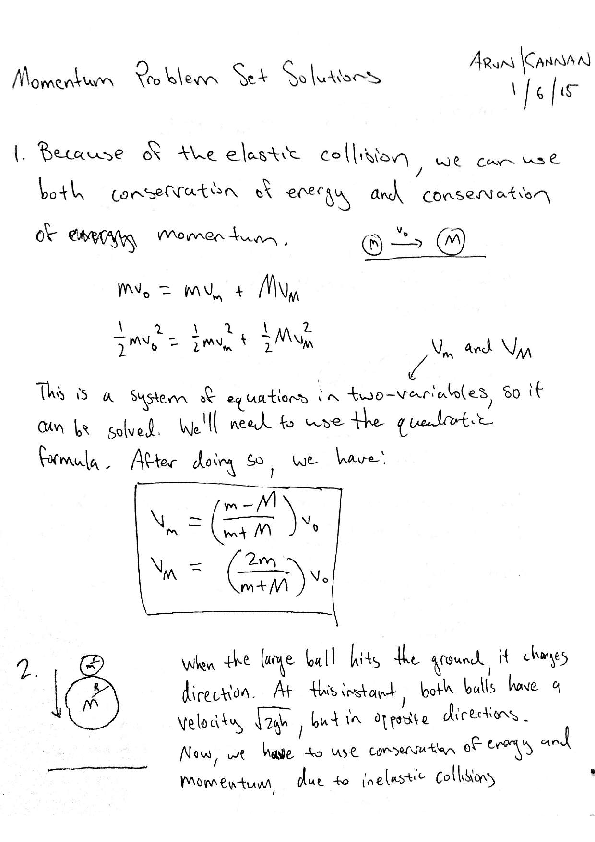 Momentum Problem Set Solutions
ARUN KANNAN
1/6/15
1. Because of the elastic collision, we can use
both conservation of energy and conservation
of energy momentum.
m v₀ → M
mv₀ = mvₘ + Mv_M
½mv₀² = ½mvₘ² + ½Mv_M²
Vₘ and V_M
This is a system of equations in two-variables, so it
can be solved. We'll need to use the quadratic
formula. After doing so, we have:
Vₘ = (m-M / m+M) v₀
V_M = (2m / m+M) v₀
2.
m
R
M
When the large ball hits the ground, it changes
direction. At this instant, both balls have a
velocity √2gh, but in opposite directions.
Now, we have to use conservation of energy and
momentum, due to inelastic collisions